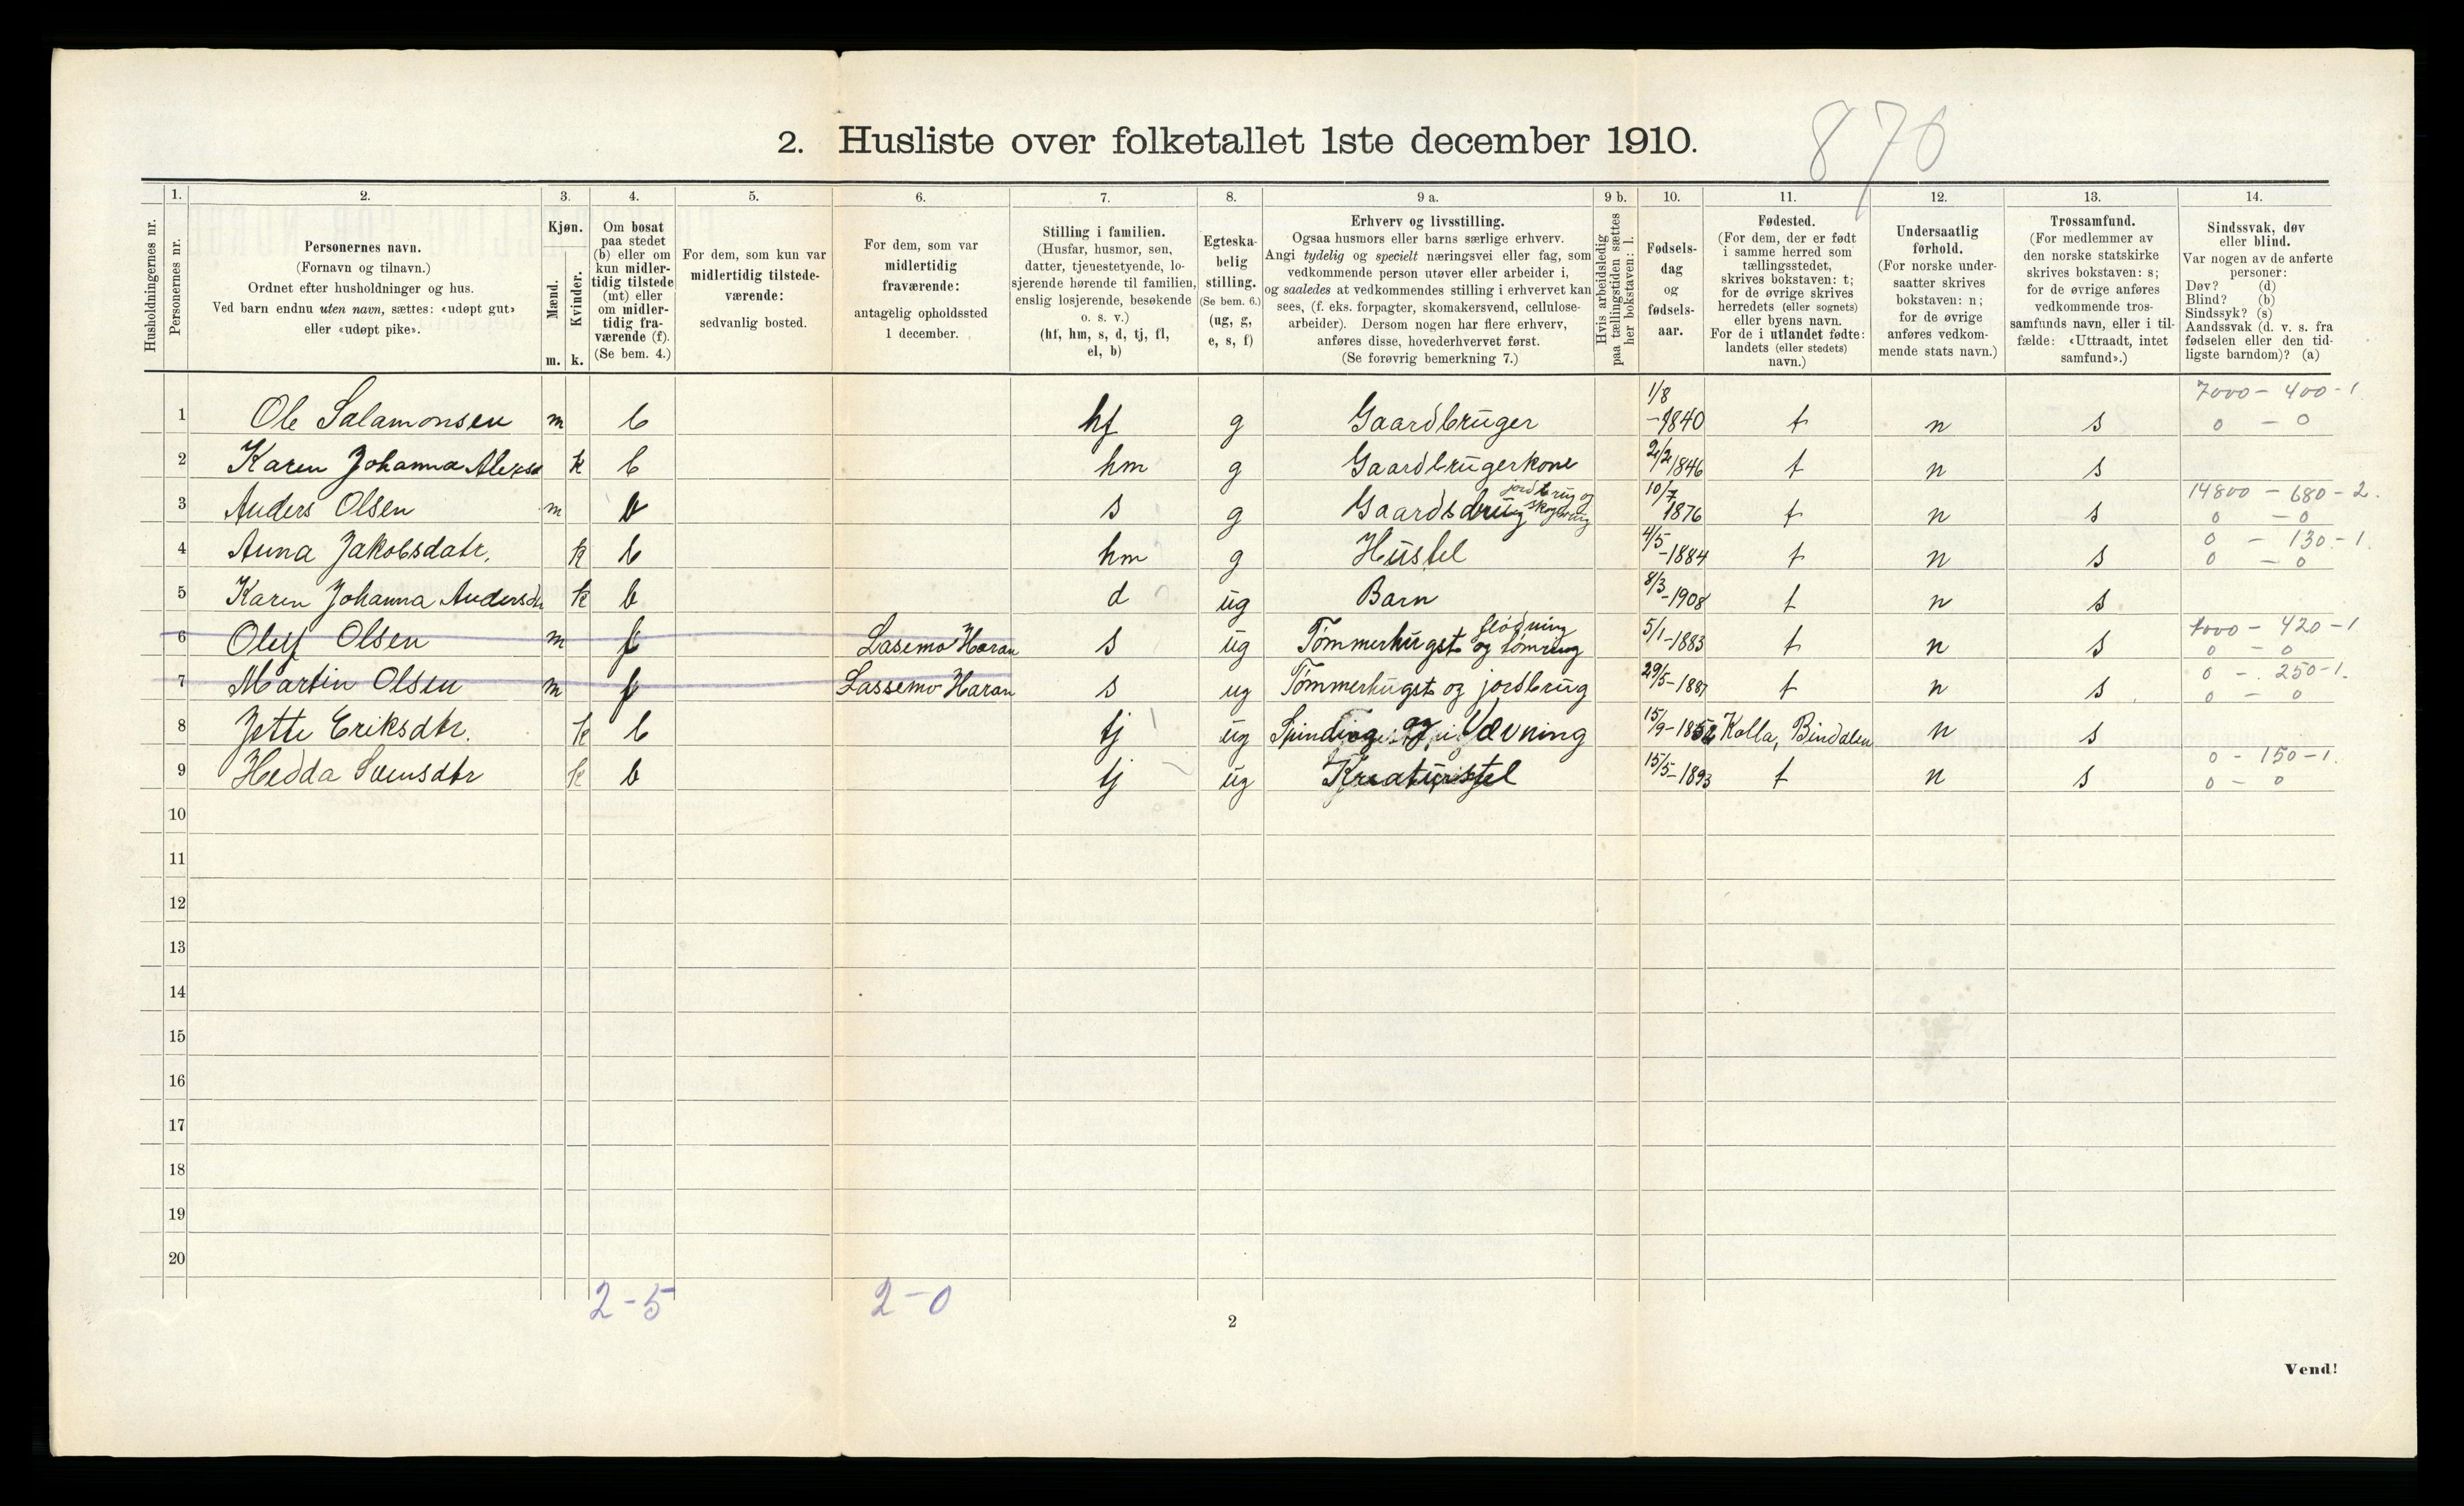 870
2. Husliste over folketallet 1ste december 1910.
Husholdningernes nr.
1.
Personernes nr.
2.
Personernes navn.
(Fornavn og tilnavn.)
Ordnet efter husholdninger og hus.
Ved barn endnu uten navn, sættes: «udøpt gut»
eller «udøpt pike».
3.
Kjøn.
Mænd.
Kvinder.
m. k.
4.
Om bosat
paa stedet
(b) eller om
kun midler-
tidig tilstede
(mt) eller
om midler-
tidig fra-
værende (f).
(Se bem. 4.)
5.
For dem, som kun var
midlertidig tilstede-
værende:
sedvanlig bosted.
6.
For dem, som var
midlertidig
fraværende:
antagelig opholdssted
1 december.
7.
Stilling i familien.
(Husfar, husmor, søn,
datter, tjenestetyende, lo-
sjerende hørende til familien,
enslig losjerende, besøkende
o. s. v.)
(hf, hm, s, d, tj, fl,
el, b)
8.
Egteska-
belig
stilling.
(Se bem. 6.)
(ug, g,
e, s, f)
9 a.
Erhverv og livsstilling.
Ogsaa husmors eller barns særlige erhverv.
Angi tydelig og specielt næringsvei eller fag, som
vedkommende person utøver eller arbeider i,
og saaledes at vedkommendes stilling i erhvervet kan
sees, (f. eks. forpagter, skomakersvend, cellulose-
arbeider). Dersom nogen har flere erhverv,
anføres disse, hovederhvervet først.
(Se forøvrig bemerkning 7.)
9 b.
Hvis arbeidsledig
paa tællingstiden sættes
her bokstaven: l.
10.
Fødsels-
dag
og
fødsels-
aar.
11.
Fødested.
(For dem, der er født
i samme herred som
tællingsstedet,
skrives bokstaven: t;
for de øvrige skrives
herredets (eller sognets)
eller byens navn.
For de i utlandet fødte:
landets (eller stedets)
navn.)
12.
Undersaatlig
forhold.
(For norske under-
saatter skrives
bokstaven: n;
for de øvrige
anføres vedkom-
mende stats navn.)
13.
Trossamfund.
(For medlemmer av
den norske statskirke
skrives bokstaven: s;
for de øvrige anføres
vedkommende tros-
samfunds navn, eller i til-
fælde: «Uttraadt, intet
samfund».)
14.
Sindssvak, døv
eller blind.
Var nogen av de anførte
personer:
Døv? (d)
Blind? (b)
Sindssyk? (s)
Aandssvak (d. v. s. fra
fødselen eller den tid-
ligste barndom)? (a)
1/8 7000 - 400 - 1
1 Ole Salamonsen m b hf g Gaardbruger -1840 t n s 0 - 0
2 Karen Johanna k b hm g Gaardbrugerkone 2/2 1846 t n s
jordbrug og 10/7 14800 - 680 - 2.
3 Anders Olsen m b s g Gaardsbrug skogbrug 1876 t n s 0 - 0
0 - 130 - 1
4 Anna Jakobsdatr. k b hm g Hüstel 4/5-1884 t n s 0 - 0
5 Karen Johanna Andersdtr k b d ug Barn 8/3-1908 t n s
flødning 4000 - 420 - 1
6 Oluf Olsen m f Lasemo Haran s ug Tømmerhugst og tømring 5/1-1883 t n s 0 - 0
0 - 250 - 1.
7 Martin Olsen m f Lassemo Haran s ug Tømmerhugst og jordbrug 29/5-1887 t n s 0 - 0
8 Jette Eriksdtr. k b tj ug Spinding og Vævning 15/9-1852 Kolla, Bindalen n s
0 - 150 - 1.
9 Hedda Svensdtr k b tj ug Kreaturstel 15/5-1893 t n s 0 - 0
10
11
12
13
14
15
16
17
18
19
20
2-5 2-0
2
Vend!